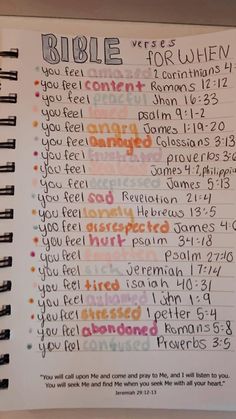 BIBLE verses
for WHEN
you feel amazed 2 Corinthians 4:
you feel content Romans 12:12
you feel peaceful Jhon 16:33
you feel loved psalm 9:1-2
you feel angry James 1:19-20
you feel annoyed Colossians 3:13
you feel frustrated proverbs 3:6
you feel James 4:2, philippi
you feel depressed James 5:13
you feel sad Revelation 21:4
you feel lonely Hebrews 13:5
you feel disrespected James 4:
you feel hurt psalm 34:18
you feel forgotten Psalm 27:10
you feel sick Jeremiah 17:14
you feel tired isaiah 40:31
you feel ashamed 1 john 1:9
you feel stressed 1 petter 5:4
you feel abandoned Romans 5:8
you feel confused Proverbs 3:5
"You will call upon Me and come and pray to Me, and I will listen to you.
You will seek Me and find Me when you seek Me with all your heart."
Jeremiah 29:12-13